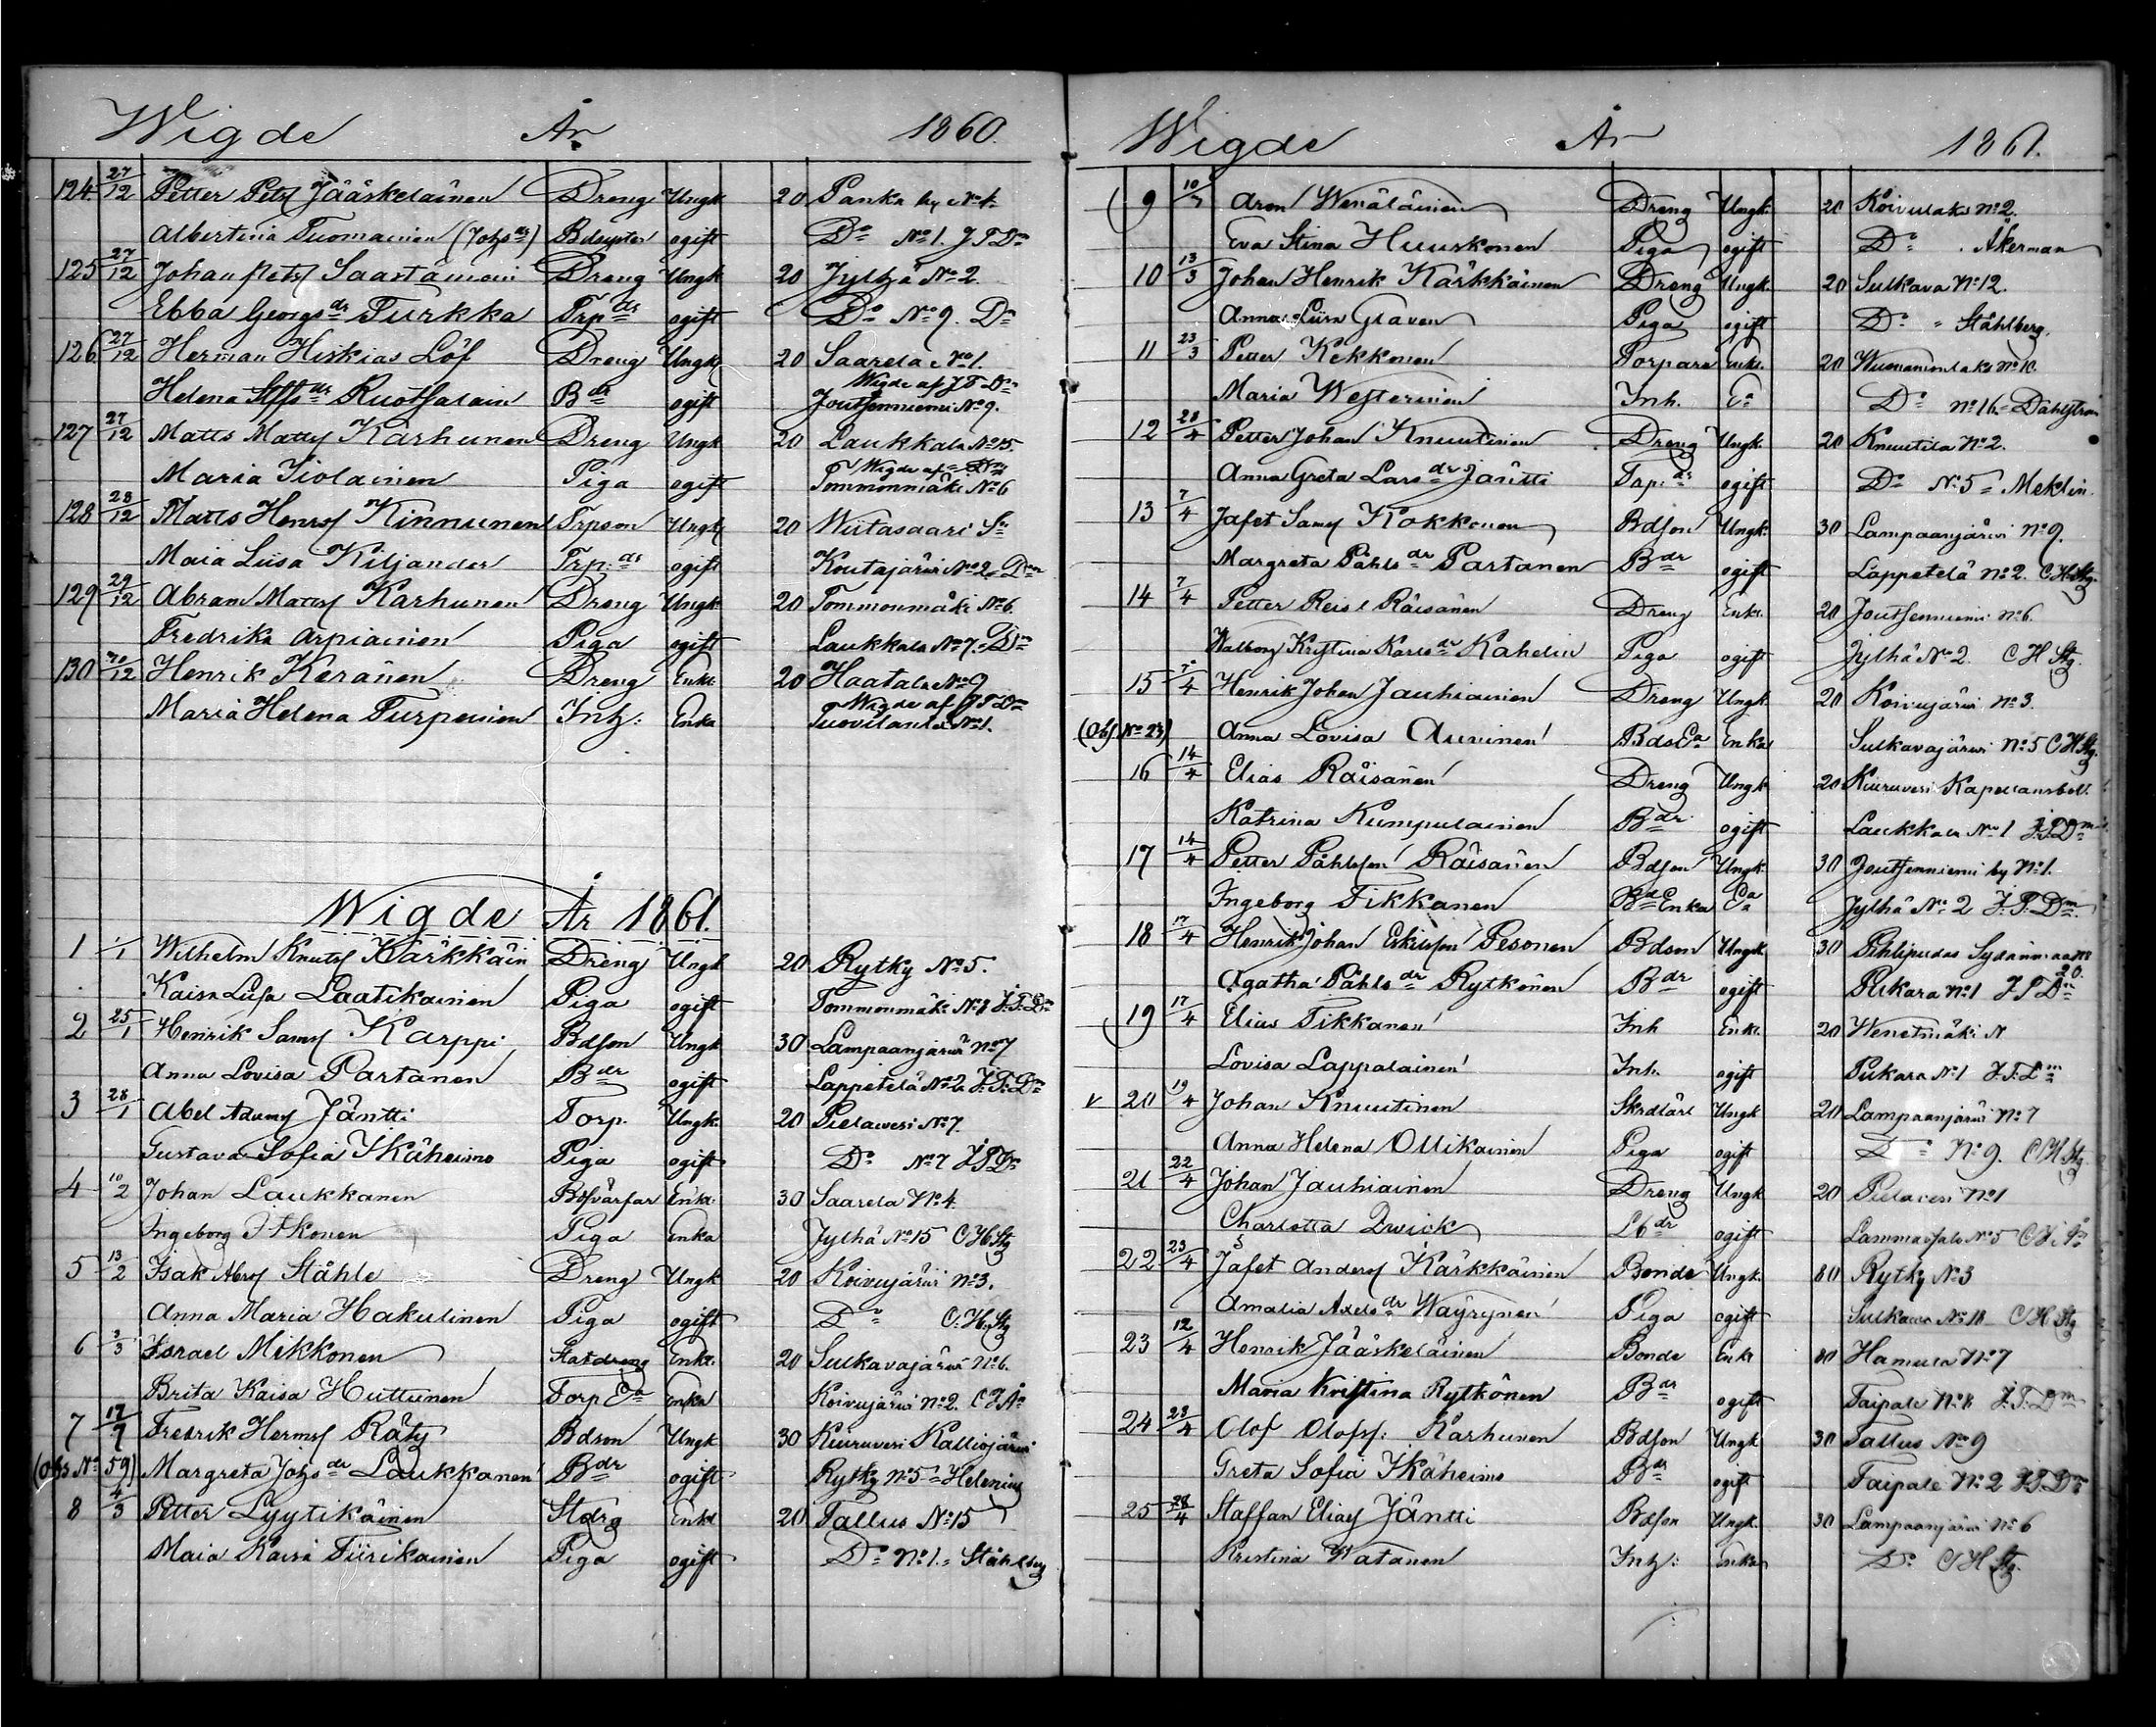 Wigde År 1860.
124. 27/12 Petter Petr Jääskeläinen Dreng Ungk. 20 Panka by No 4.
Albertina Tuomainen (Johsdr) Bdsyster ogift Do No 1. J T Dm
125 27/12 Johan Petr Saastamoin Dreng Ungk 20 Jylhä No 2.
Ebba Georgsdr Turkka Trpdr ogift Do No 9. Dm
126 27/12 Herman Hiskias Löf Dreng Ungk 20 Saarela No 1.
Wigde af J T Dm
Helena Stffsdr Ruotsalain Bdr ogift Joutsenniemi No 9.
127 27/12 Matts Matts Karhunen Dreng Ungk 20 Laukkala No 15.
Wigde af Dm
Maria Tiolainen Piga ogift Tommonmäki No 6
128 28/12 Matts Henrs Kinnunen Trpson Ungk 20 Wiitasaari Sn
Maia Liisa Kiljander Trp. dr ogift Koutajärvi No 2. Dm
129 29/12 Abram Matts Karhunen Dreng Ungk 20 Tommonmäki No 6.
Fredrika Arpiainen Piga ogift Laukkala No 7. Dm
130 30/12 Henrik Keränen Dreng Enkl. 20 Haatala No 9
Wigde af J T Dm
Maria Helena Turpeinen Inh: Enka Tuovilanla No 1.
Wigde År 1861.
1 1/1 Wilhelm Knuts Kärkkäin Dreng Ungk 20 Rytky No 5.
Kaisa Lisa Laatikainen Piga ogift Tommonmäki No 8 J. T. Dm
2 25/1 Henrik Sams Karppi Bdson Ungk 30 Lampaanjärvi No 7
Anna Lovisa Partanen Bdr ogift Lappetelä No 2 J. T. Dm
3 28/1 Abel Adams Jäntti Torp. Ungk. 20 Pielavesi No 7.
Gustava Sofia Ikäheimo Piga ogift Do No 7 J T Dm
4 10/2 Johan Laukkanen Bdsvärfar Enkl. 30 Saarela No 4
Ingeborg Itkonen Piga Enka Jylhä No 15 C H Stg
5 13/2 Isak Abrs Ståhle Dreng Ungk 20 Koivujärvi No 3.
Anna Maria Hakulinen Piga ogift Do C. H. Stg
6 3/3 Israel Mikkonen Statdreng Enkl. 20 Sulkavajärvi No 6.
Brita Kaisa Huttunen Torp Ea Enka Koivujärvi No 2.
7 Fredrik Herms Räty Bdson Ungk 30 Kiuruvesi Kalliojärvi
(Obs No 59) Margreta Johsdr Laukkanen Bdr ogift Rytky No 5 Helenius
8 4/3 Petter Lyytikäinen Stdrg Enkl 20 Tallus No 15
Maia Kaisa Tiirikainen Piga ogift Do No 1. Ståhlberg
Wigde År 1861.
9 10/3 Aron Wenäläinen Dreng Ungk. 20 Koivulaks No 2.
Eva Stina Huuskonen Piga ogift Do Åkerman
10 13/3 Johan Henrik Kärkkäinen Dreng Ungk. 20 Sulkava No 12.
Anna Liisa Graven Piga ogift Do Ståhlberg.
11 23/3 Petter Kekkonen Torpare Enkl. 20 No 10.
Maria Westerinen Inh. Ea Do No 16 Dahlström
12 28/4 Petter Johan Knuutinen Dreng Ungk. 20 Knuutila No 2.
Anna Greta Larsdr Jäntti Trp. dr ogift Do No 5 Meklin.
13 7/4 Jafet Sams Kokkonen Bdson Ungk. 30 Lampaanjärvi No 9.
Margreta Påhlsdr Partanen Bdr ogift Lappetelä No 2. C H Stg
14 7/4 Petter Räisänen Dreng Enkl. 20 Joutsenniemi No 6.
Walborg Kristina Karlsdr Kahelin Piga ogift Jylhä No 2 C H Stg.
15 7/4 Henrik Johan Jauhiainen Dreng Ungk. 20 Koivujärvi No 3.
(Obs No 23) Anna Lovisa Auvinen Bds Ea Enka Sulkavajärvi No 5 C H Stg.
16 14/4 Elias Räisänen Dreng Ungk 20 Kiuruvesi Kapellansbol.
Katrina Kumpulainen Bdr ogift Laukkala No 1 J. T. Dm
17 14/4 Petter Påhlsson Räisänen Bdson Ungk. 30 Joutsenniemi by No 1.
Ingeborg Tikkanen Bd Enka Ea Jylhä No 2 J. T. Dm
18 17/4 Henrik Johan Erikson Pesonen Bdson Ungk 30 Pihlipudas Sydänmaa No 20.
Agatha Påhlsdr Rytkönen Bdr ogift Pukara No 1 J T Dm
19 17/4 Elias Tikkanen Inh Enkl. 20 Wenetmäki N
Lovisa Lappalainen Inh. ogift Pukara No 1 J. T. Dm
v 20 19/4 Johan Knuutinen Skrdlärl Ungk 20 Lampaanjärvi No 7
Anna Helena Ollikainen Piga ogift Do No 9. C H Stg.
21 22/4 Johan Jauhiainen Dreng Ungk 20 Pielavesi No 1
Charlotta Qvick dr ogift Lammassalo No 5
22 23/4 Jafet Anders Kärkkäinen Bonde Ungk. 80 Rytky No 3
Amalia Axelsdr Wäyrynen Piga ogift Sulkava No 18 C H Stg
23 12/4 Henrik Jääskeläinen Bonde Enkl 80 Hamula No 7
Maria Kristina Rytkönen Bdr ogift Taipale No 8 J. T. Dm
24 28/4 Olof Olofs: Karhunen Bdson Ungk 30 Tallus No 9
Greta Sofia Ikäheimo Bdr ogift Taipale No 2 J T Dm
25 28/4 Staffan Elias Jäntti Bdson Ungk. 30 Lampaanjärvi No 6
Kristina Watanen Inh: Enka Do C H Stg.